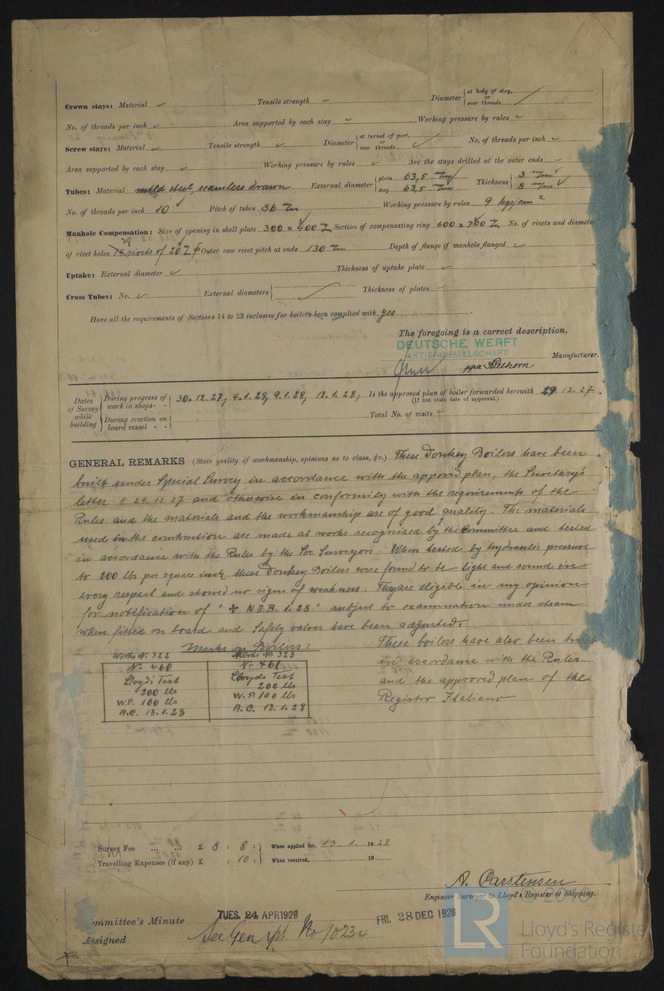 Crown stays: Material ✓ Tensile strength – Diameter { at body of stay, or over threads
No. of threads per inch ✓ Area supported by each stay ✓ Working pressure by rules ✓
Screw stays: Material ✓ Tensile strength ✓ Diameter { at turned off part, or over threads No. of threads per inch ✓
Area supported by each stay ✓ Working pressure by rules ✓ Are the stays drilled at the outer ends ✓
Tubes: Material mild steel, seamless drawn External diameter { plain 63,5 m/m stay 63,5 m/m Thickness { 3 m/m 8 m/m
No. of threads per inch 10 Pitch of tubes 86 m/m Working pressure by rules 9 kgs/cm²
Manhole Compensation: Size of opening in shell plate 300 x 400 m/m Section of compensating ring 600 x 700 m/m No. of rivets and diameter
of rivet holes rivets of 20 Outer row rivet pitch at ends 130 m/m Depth of flange if manhole flanged ✓
Uptake: External diameter ✓ Thickness of uptake plate ✓
Cross Tubes: No. ✓ External diameters { Thickness of plates ✓
Have all the requirements of Sections 14 to 23 inclusive for boilers been complied with yes
The foregoing is a correct description,
DEUTSCHE WERFT
AKTIENGESELLSCHAFT
ppa Manufacturer.
Dates of Survey while building { During progress of work in shops - - 30.12.27, 4.1.28, 9.1.28, 13.1.28, Is the approved plan of boiler forwarded herewith 29.12.27.
(If not state date of approval.)
During erection on board vessel - - - Total No. of visits 4
GENERAL REMARKS (State quality of workmanship, opinions as to class, &c.) These Donkey Boilers have been
built under Special Survey in accordance with the approved plan, the Secretary's
letter E 29.12.27 and otherwise in conformity with the requirements of the
Rules and the materials and the workmanship are of good quality. The materials
used in the construction are made at works recognized by the Committee and tested
in accordance with the Rules by the Soc Surveyors. When tested by hydraulic pressure
to 200 lbs per square inch these Donkey Boilers were found to be tight and sound in
every respect and showed no signs of weakness. They are eligible in my opinion
for notification of "✠ N.D.B. 1.28" subject to examination under steam
when fitted on board and Safety valves have been adjusted.
Marks on Boilers:
Works No. 322 Works No. 323
No. 460 No 461
Lloyds Test Lloyds Test
200 lbs 200 lbs
W.P. 100 lbs W.P. 100 lbs
A.C. 13.1.28 A.C. 13.1.28
These boilers have also been built
in accordance with the Rules
and the approved plan of the
Registro Italiano
Survey Fee ... ... £ 8 : 8 : When applied for, 13.1. 1928
Travelling Expenses (if any) £ : 10 : When received, 19
A. Carstensen
Engineer Surveyor to Lloyd's Register of Shipping.
Committee's Minute TUES. 24 APR 1928 FRI. 28 DEC 1928
Assigned See Gen rpt No
LR Lloyd's Register
Foundation